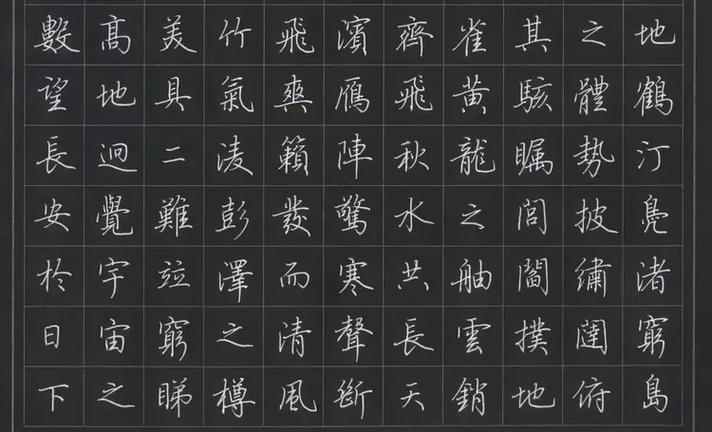 地鶴汀鳧渚窮島
之體勢披繡闥俯
其駭矚閭閻撲地
雀黄龍之舳雲銷
齊飛秋水共長天
濱鴈陣驚寒聲斷
飛爽籟發而清風
竹氣淩彭澤之樽
美具二難竝窮睇
髙地迥覺宇宙之
數望長安於日下